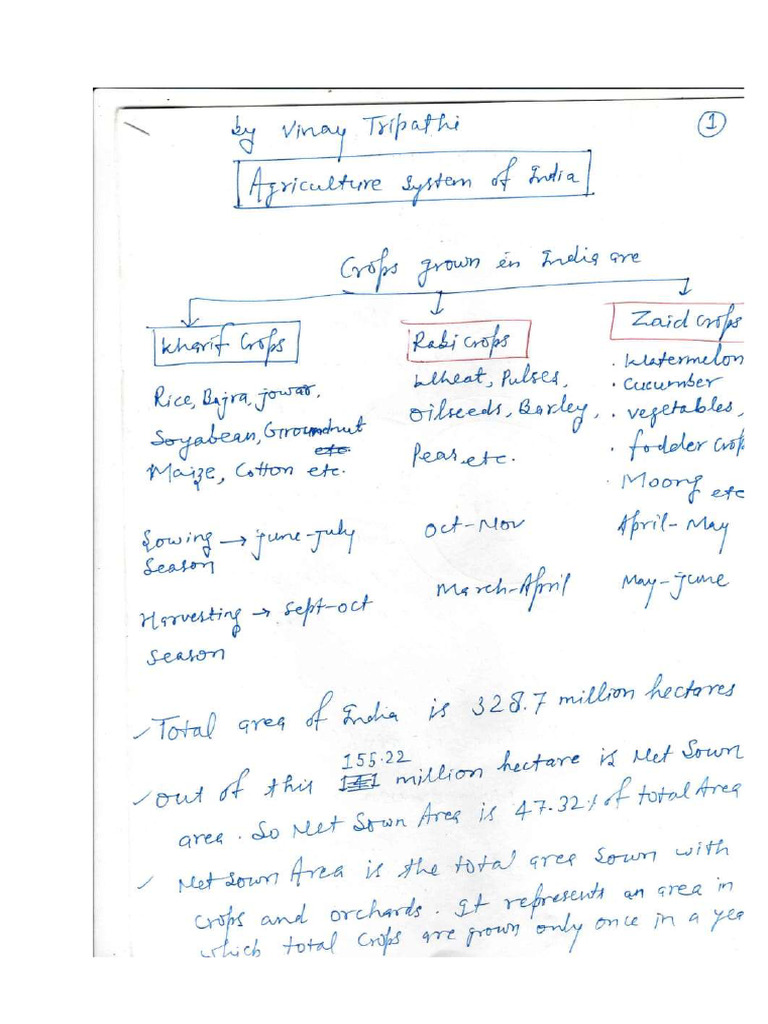 by Vinay Tripathi
1
Agriculture System of India
Crops grown in India are
Kharif Crops
Rice, Bajra, jowar,
Soyabean, Groundnut
etc.
Maize, Cotton etc.
Rabi crops
Wheat, Pulses,
Oilseeds, Barley,
Peas etc.
Zaid crops
· Watermelon
· Cucumber
· vegetables,
· fodder crop
· Moong etc
Sowing → june-july Oct-Nov April-May
Season
Harvesting → Sept-oct March-April May-june
Season
✓ Total area of India is 328.7 million hectares
155.22
✓ out of this 141 million hectare is Net Sown
area. So Net Sown Area is 47.32% of total Area
✓ Net Sown Area is the total area sown with
crops and orchards. It represents an area in
which total crops are grown only once in a yea